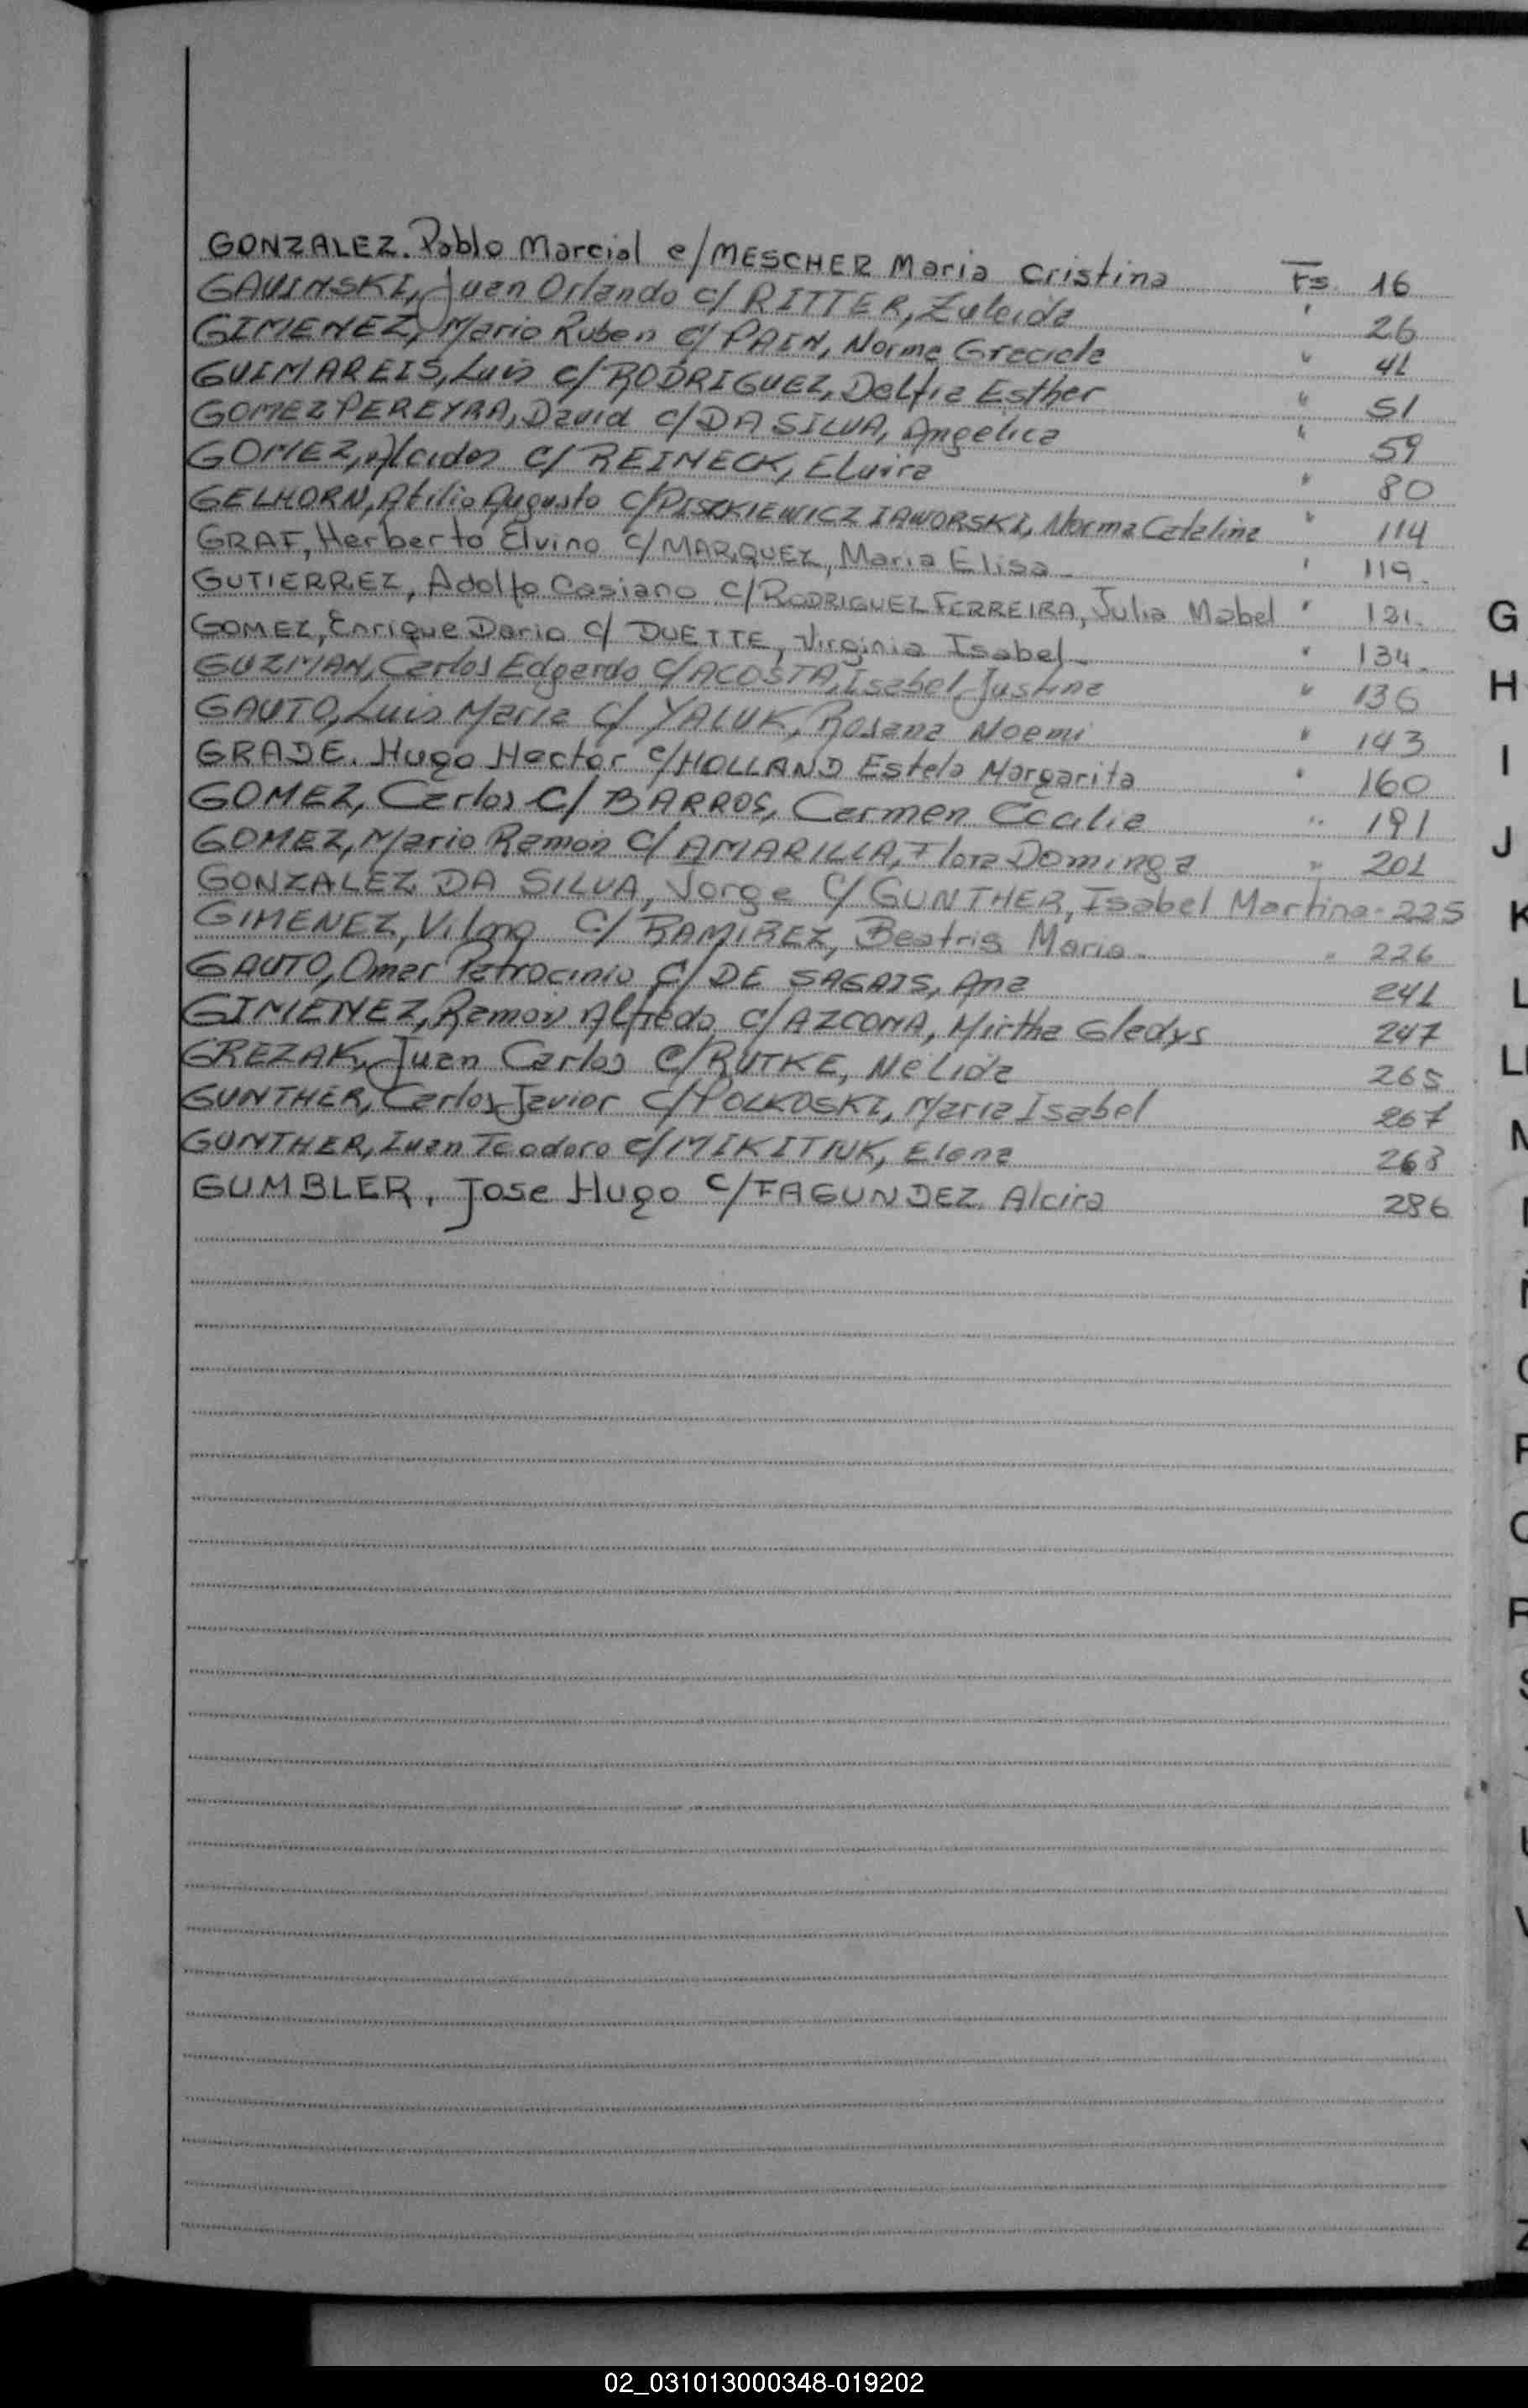 GONZALEZ. Pablo Marcial c/ MESCHER Maria Cristina Fs. 16
GAVINSKI, Juan Orlando c/ RITTER, Zuleida " 26
GIMENEZ, Mario Ruben c/ PAEN, Norma Graciela " 41
GUIMAREIS, Luis c/ RODRIGUEZ, Delfia Esther " 51
GOMEZ PEREYRA, David c/ DA SILVA, Angelica " 59
GOMEZ, Alcides c/ REINECK, Elvira " 80
GELHORN, Atilio Augusto c/ PISZKIEWICZ IAWORSKI, Norma Catalina " 114
GRAF, Herberto Elvino c/ MARQUEZ, Maria Elisa " 119.
GUTIERREZ, Adolfo Casiano c/ RODRIGUEZ FERREIRA, Julia Mabel " 131.
GOMEZ, Enrique Dario c/ DUETTE, Virginia Isabel " 134.
GUZMAN, Carlos Edgardo c/ ACOSTA, Isabel Justina " 136
GAUTO, Luis Maria c/ YALUK, Rosana Noemi " 143
GRADE. Hugo Hector c/ HOLLAND Estela Margarita " 160
GOMEZ, Carlos c/ BARROS, Carmen Cecilia " 191
GOMEZ, Mario Ramon c/ AMARILLA, Flora Dominga " 201
GONZALEZ DA SILVA, Jorge c/ GUNTHER, Isabel Martina - 225
GIMENEZ, c/ RAMIREZ, Beatris Maria " 226
GAUTO, Omar Patrocinio c/ DE SAGAIS, Ana 241
GIMENEZ, Ramon Alfredo c/ AZCONA, Mirtha Gladys 247
GREZAK, Juan Carlos c/ RUTKE, Nelida 265
GUNTHER, Carlos Javier c/ POLKOSKI, Maria Isabel 267
GUNTHER, Teodoro c/ MIKITIUK, Elena 268
GUMBLER, Jose Hugo c/ FAGUNDEZ Alcira 286
G
H
I
J
K
L
LL
M
02_031013000348-019202